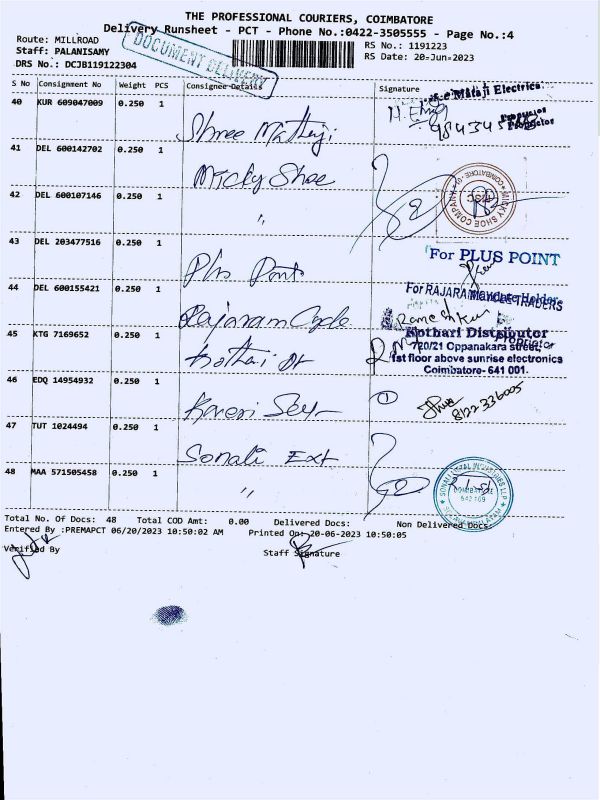 THE PROFESSIONAL COURIERS, COIMBATORE
Delivery Runsheet - PCT - Phone No.:0422-3505555 - Page No.:4
Route: MILLROAD
RS No.: 1191223
Staff: PALANISAMY
RS Date: 20-Jun-2023
DRS No.: DCJB119122304
DOCUMENT DELIVERY
S No Consignment No Weight PCS Consignee Details Signature
40 KUR 609047009 0.250 1
Mataji Electricals
Proprietor
41 DEL 600142702 0.250 1 Micky Shoe
MICKY SHOE COMPANY
COIMBATORE
42 DEL 600107146 0.250 1 "
43 DEL 203477516 0.250 1
For PLUS POINT
44 DEL 600155421 0.250 1 Rajaram Cycle
For RAJARAM TRADERS
45 KTG 7169652 0.250 1 Kothari
Kothari Distributor
720/21 Oppanakara street,
1st floor above sunrise electronics
Coimbatore- 641 001.
46 EDQ 14954932 0.250 1
8122336005
47 TUT 1024494 0.250 1 Sonali Ext
48 MAA 571505458 0.250 1 "
COIMBATORE
Total No. Of Docs: 48 Total COD Amt: 0.00 Delivered Docs: Non Delivered Docs:
Entered By :PREMAPCT 06/20/2023 10:50:02 AM Printed On: 20-06-2023 10:50:05
Verified By
Staff Signature